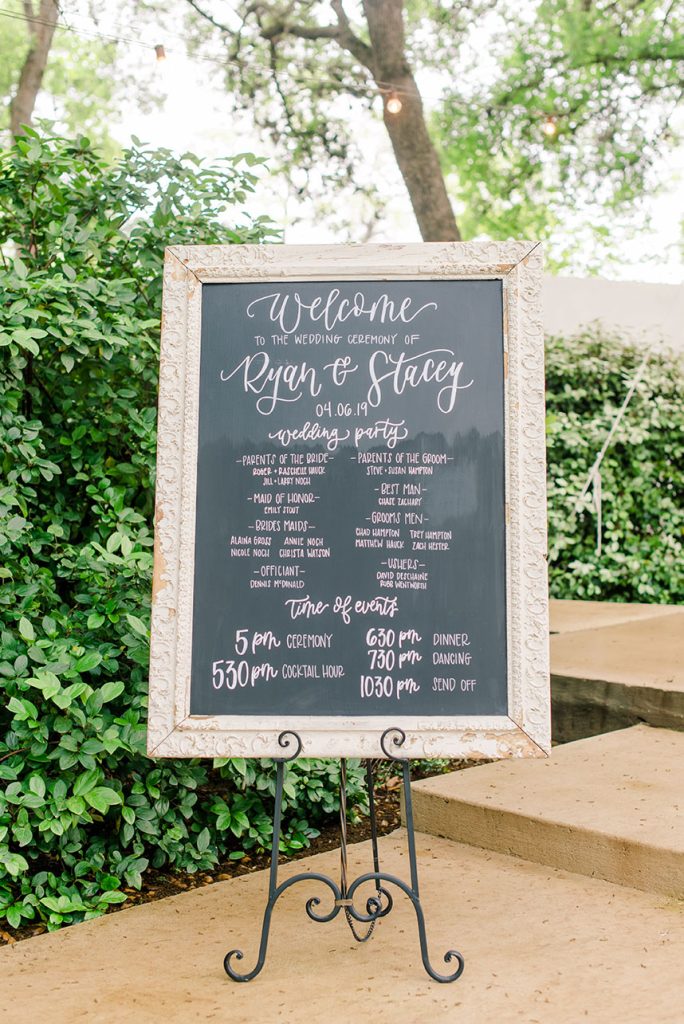 Welcome
TO THE WEDDING CEREMONY OF
Ryan & Stacey
04.06.19
wedding party
-PARENTS OF THE BRIDE-
ROGER + RASCHELLE HAUCK
JILL + LARRY NOCH
-MAID OF HONOR-
EMILY STOUT
-BRIDES MAIDS-
ALAINA GROSS ANNIE NOCH
NICOLE NOCH CHRISTA WATSON
-OFFICIANT-
DENNIS McDONALD
-PARENTS OF THE GROOM-
STEVE + SUSAN HAMPTON
-BEST MAN-
CHASE ZACHARY
-GROOMS MEN-
CHAD HAMPTON TREY HAMPTON
MATTHEW HAUCK ZACH HESTER
-USHERS-
DAVID DESCHAINE
ROBB WENTWORTH
Time of events
5 pm CEREMONY
530 pm COCKTAIL HOUR
630 pm DINNER
730 pm DANCING
1030 pm SEND OFF